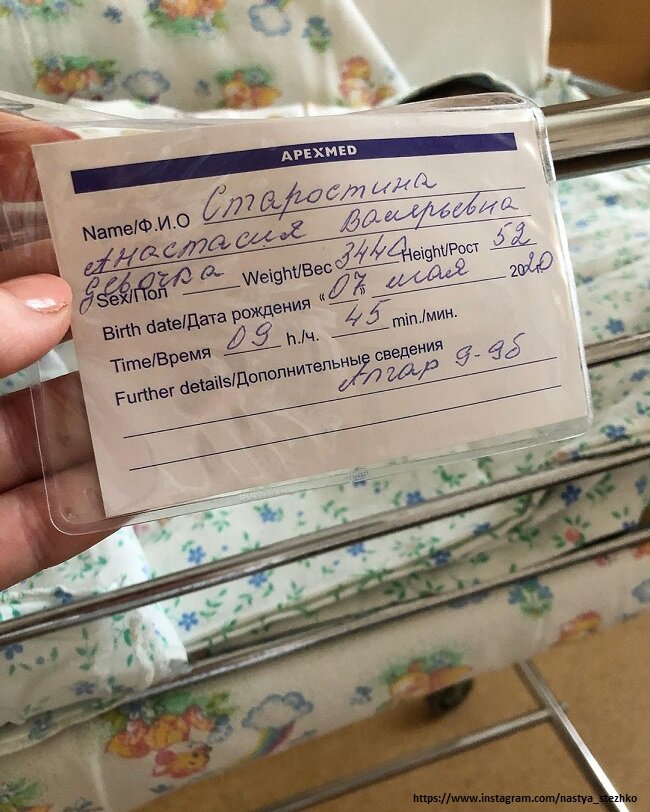 APEXMED
Name/Ф.И.О Старостина
Анастасия Валерьевна
девочка
Sex/Пол Weight/Вес 3440 Height/Рост 52
Birth date/Дата рождения «07» мая 2020
Time/Время 09 h./ч. 45 min./мин.
Further details/Дополнительные сведения
Апгар 9-9б
https://www.instagram.com/nastya_stezhko